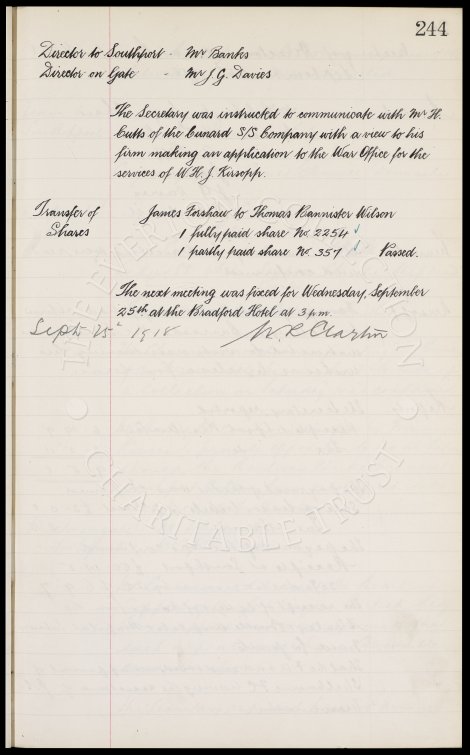 244
Director to Southport - Mr Banks
Director on Gate - Mr J. G. Davies
The Secretary was instructed to communicate with Mr H.
Cutts of the Cunard S/S Company with a view to his
firm making an application to the War Office for the
services of W. H. J. Kirsopp.
Transfer of James Forshaw to Thomas Bannister Wilson
Shares 1 fully paid share No. 2254
1 partly paid share No. 357 Passed.
The next meeting was fixed for Wednesday, September
25th at the Bradford Hotel at 3 p.m.
Sept 25 1918 W. R. Clayton
THE EVERTON COLLECTION
CHARITABLE TRUST